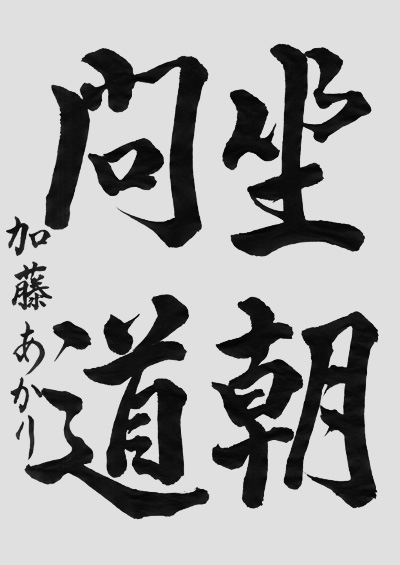 坐朝
問道
加藤あかり